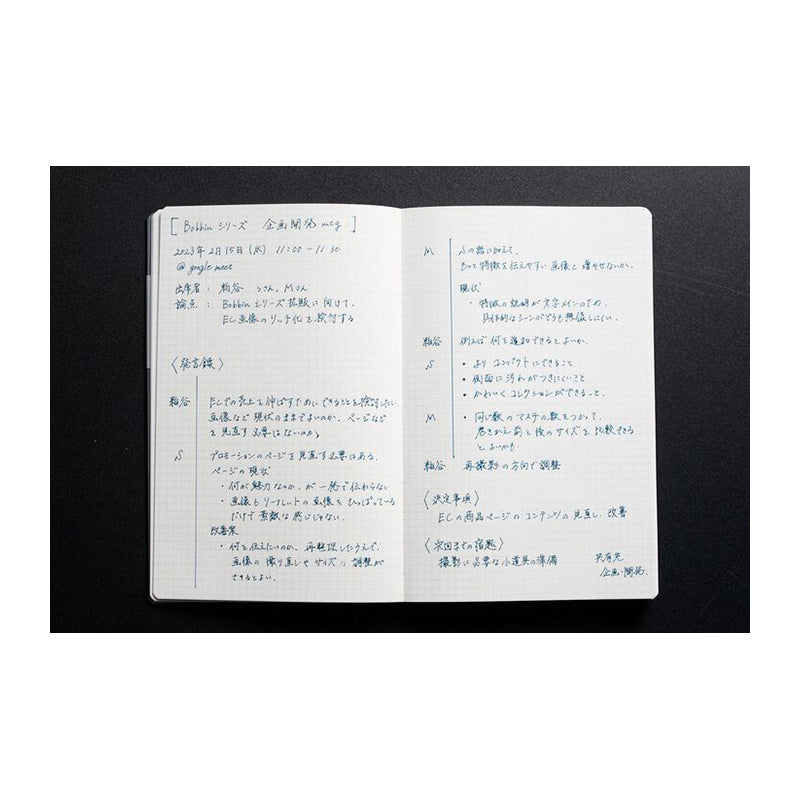 [ Bobbin シリーズ 企画開発 mtg ]
2023年2月15日(水) 11:00-11:30
@ google meet
出席者: 粕谷 Sさん, Mさん
論点: Bobbinシリーズ拡販に向けて、
EC画像のリッチ化を検討する
〈発言録〉
粕谷 ECでの売上を伸ばすためにできることを検討したい。
画像など現状のままでよいのか、ページなど
を見直す必要はないのか。
S プロモーションのページを見直す必要はある。
ページの現状
・何が魅力なのか、が一発で伝わらない
・画像もリーフレットの画像をひっぱっている
だけで素敵な感じじゃない.
改善案
・何を伝えたいのか、再整理したうえで、
画像の撮り直しやサイズの調整が
できるとよい.
M Sの話に加えて、
もっと特徴を伝えやすい画像を増やせないか.
現状
・特徴の説明が文字メインのため、
具体的なシーンがどうも想像しにくい.
粕谷 例えば何を追加できるとよいか.
S ・よりコンパクトにできること
・側面に汚れがつきにくいこと
・かわいくコレクションができること.
M ・同じ数のマステの数をつかって、
巻きかえ前と後のサイズを比較できる
とよいかも.
粕谷 再撮影の方向で調整
〈決定事項〉
ECの商品ページのコンテンツの見直し、改善
〈次回までの宿題〉
撮影に必要な小道具の準備
共有先
企画・開発.